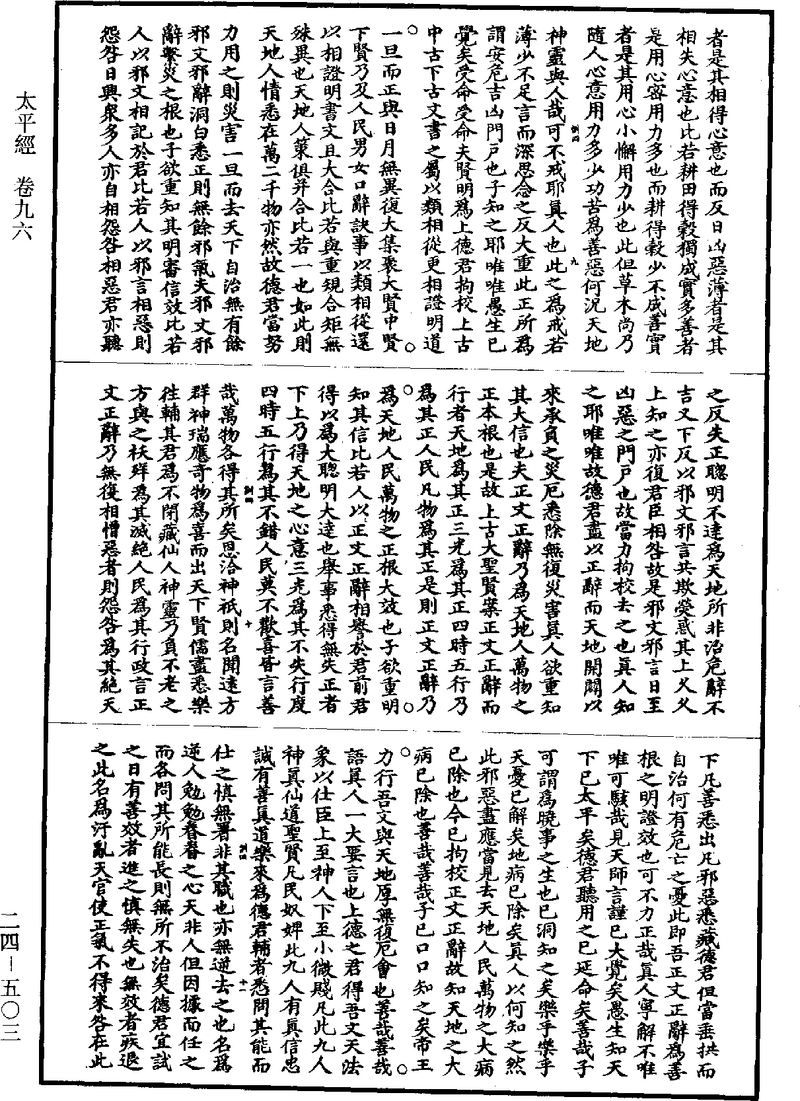 者是其相得心意也而反日凶惡薄者是其
相失心意也比若耕田得穀獨成實多善者
是用心密用力多也而耕得穀少不成善實
者是其用心小懈用力少也此但草木尚乃
隨人心意用力多少功苦為善惡何況天地
神靈與人哉可不戒耶真人也此之為戒若
薄少不足言而深思念之反大重此正所為
謂安危吉凶門戶也子知之耶唯唯愚生已
覺矣受命受命夫賢明為上德君拘校上古
中古下古文書之屬以類相從更相證明道
一旦而正與日月無異復大集聚大賢中賢
下賢乃及人民男女口辭訣事以類相從還
以相證明書文且大合比若與重規合矩無
殊異也天地人策俱并合比若一也如此則
天地人情悉在萬二千物亦然故德君當努
力用之則災害一旦而去天下自治無有餘
邪文邪辭洞白悉正則無餘邪氣夫邪文邪
辭繫災之根也子欲重知其明審信效比若
人以邪文相記於君比若人以邪言相惡則
怨咎日興衆多人亦自相怨咎相惡君亦聽
之反失正聰明不達為天地所非治危辭不
吉又下反以邪文邪言共欺熒惑其上久久
上知之亦復君臣相咎故是邪文邪言日至
凶惡之門戶也故當力拘校去之也真人知
之耶唯唯故德君盡以正辭而天地開闢以
來承負之災厄悉除無復災害真人欲重知
其大信也夫正文正辭乃為天地人萬物之
正本根也是故上古大聖賢案正文正辭而
行者天地為其正三光為其正四時五行乃
為其正人民凡物為其正是則正文正辭乃
為天地人民萬物之正根大效也子欲重明
知其信比若人以正文正辭相譽於君前君
得以為大聰明大達也舉事悉得無失正者
下上乃得天地之心意三光為其不失行度
四時五行為其不錯人民莫不歡喜皆言善
哉萬物各得其所矣恩洽神祇則名聞遠方
群神瑞應奇物為喜而出天下賢儒盡悉樂
往輔其君為不閉藏仙人神靈乃負不老之
方與之祅祥為其滅絕人民為其行政言正
文正辭乃無復相憎惡者則怨咎為其絕天
下凡善悉出凡邪惡悉藏德君但當垂拱而
自治何有危亡之憂此即吾正文正辭為善
根之明證效也可不力正哉真人寧解不唯
唯可駭哉見天師言謹已大覺矣愚生知天
下已太平矣德君聽用之已延命矣善哉子
可謂為曉事之生也已洞知之矣樂乎樂乎
天憂已解矣地病已除矣真人以何知之然
此邪惡盡應當見去天地人民萬物之大病
已除也今已拘校正文正辭故知天地之大
病已除也善哉善哉子已口口知之矣帝王
力行吾文與天地厚無復厄會也善哉善哉
語真人一大要言也上德之君得吾文天法
象以仕臣上至神人下至小微賤凡此九人
神真仙道聖賢凡民奴婢此九人有真信忠
誠有善真道樂來為德君輔者悉問其能而
仕之慎無署非其職也亦無逆去之也名為
逆人勉勉眷眷之心天非人但因據而任之
而各問其所能長則無所不治矣德君宜試
之日有善效者進之慎無失也無效者疾退
之此名為汙亂天官使正氣不得來咎在此
太平經 卷九六
二四-五〇三